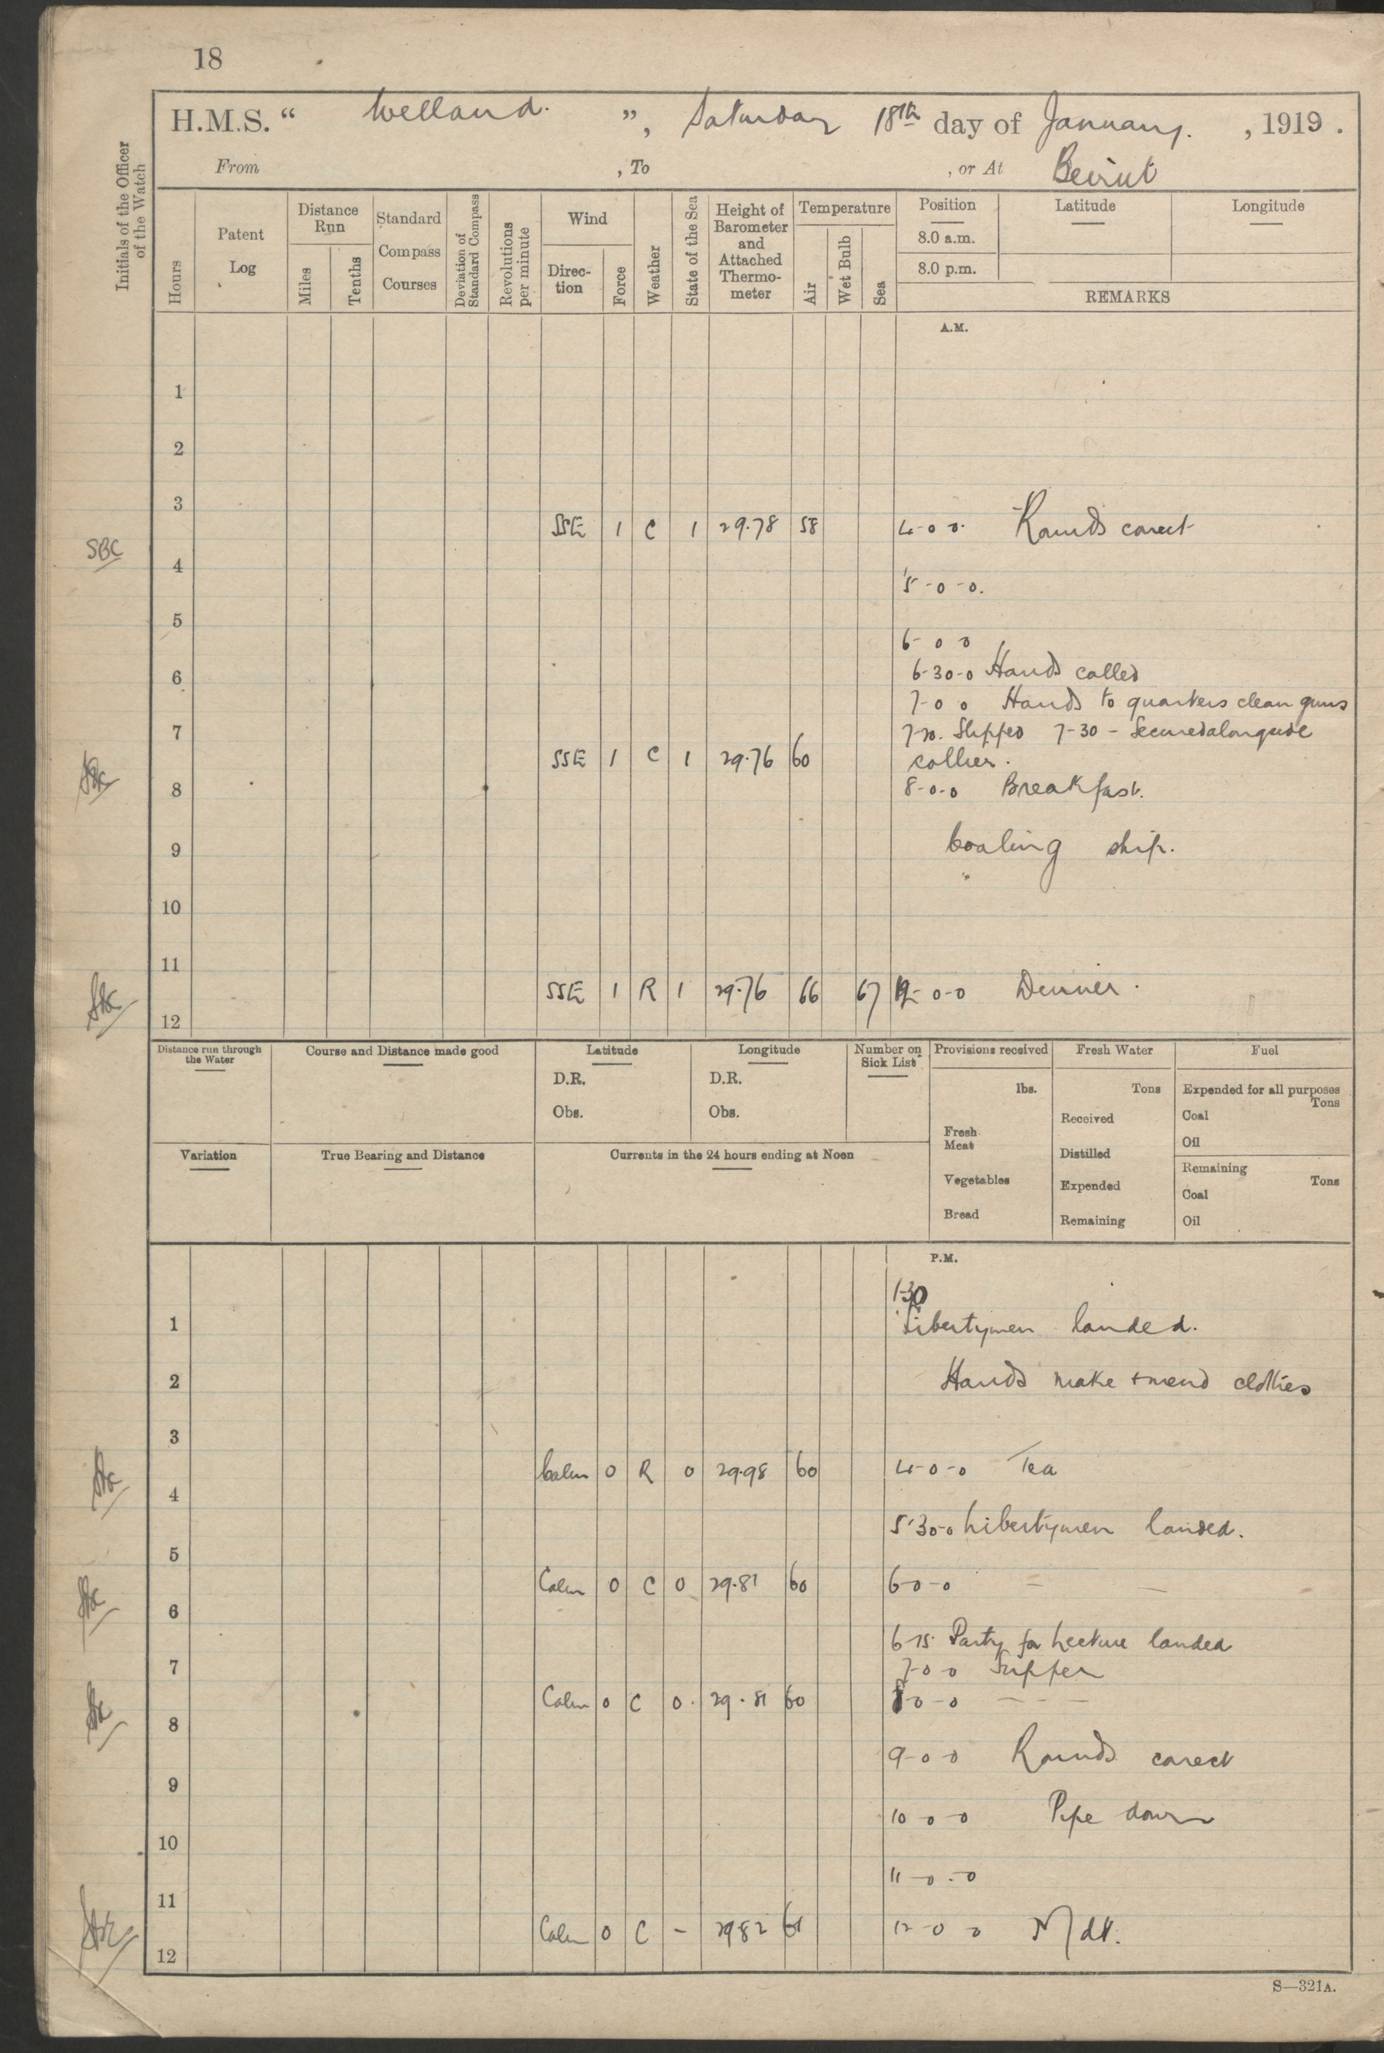 18
H.M.S. “ Welland. ”, Saturday 18th day of January. , 1919.
From , To , or At Beirut
Initials of the Officer of the Watch
Hours
Patent Log
Distance Run
Miles
Tenths
Standard Compass Courses
Deviation of Standard Compass
Revolutions per minute
Wind
Direc-tion
Force
Weather
State of the Sea
Height of Barometer and Attached Thermo-meter
Temperature
Air
Wet Bulb
Sea
Position Latitude Longitude
8.0 a.m.
8.0 p.m.
REMARKS
A.M.
1
2
3
SSE 1 C 1 29.78 58 4-0-0. Rounds corect
SBC
4
5-0-0.
5
6-0 0
6 6-30-0 Hands called
7-0 0 Hands to quarters clean guns
7 7-20. Slipped 7-30 - Secured alongside
SSE 1 C 1 29.76 60 collier.
SBC
8 8-0-0 Breakfast.
9 Coaling ship.
10
11
SSE 1 R 1 29.76 66 67 12-0-0 Dinner.
SBC
12
Distance run through the Water
Course and Distance made good
Latitude
D.R.
Obs.
Longitude
D.R.
Obs.
Number on Sick List
Provisions received
lbs.
Fresh Meat
Vegetables
Bread
Fresh Water
Tons
Received
Distilled
Expended
Remaining
Fuel
Expended for all purposes
Tons
Coal
Oil
Remaining
Tons
Coal
Oil
Variation
True Bearing and Distance
Currents in the 24 hours ending at Noon
P.M.
1-30
1 Libertymen landed.
2 Hands make + mend clothes
3
Calm 0 R 0 29.98 60 4-0-0 Tea
SBC
4
5-30-0 Libertymen landed.
5
Calm 0 C 0 29.81 60 6-0-0 — —
SBC
6
6-15. Party for Lecture landed
7 7-0 0 Supper
Calm 0 C 0. 29.81 60 8-0-0 — — —
SBC
8
9-0 0 Rounds corect
9
10 0 0 Pipe down
10
11-0.-0
11
Calm 0 C - 29 82 61 12-0 0 Mdt.
SBC
12
S—321A.